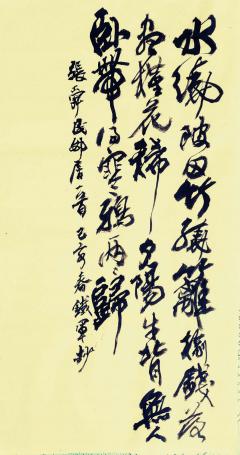 水繞陂田竹繞籬榆錢落
盡槿花稀夕陽牛背無人
臥帶得寒鴉兩兩歸
張舜民邨居一首己亥春鐵軍抄